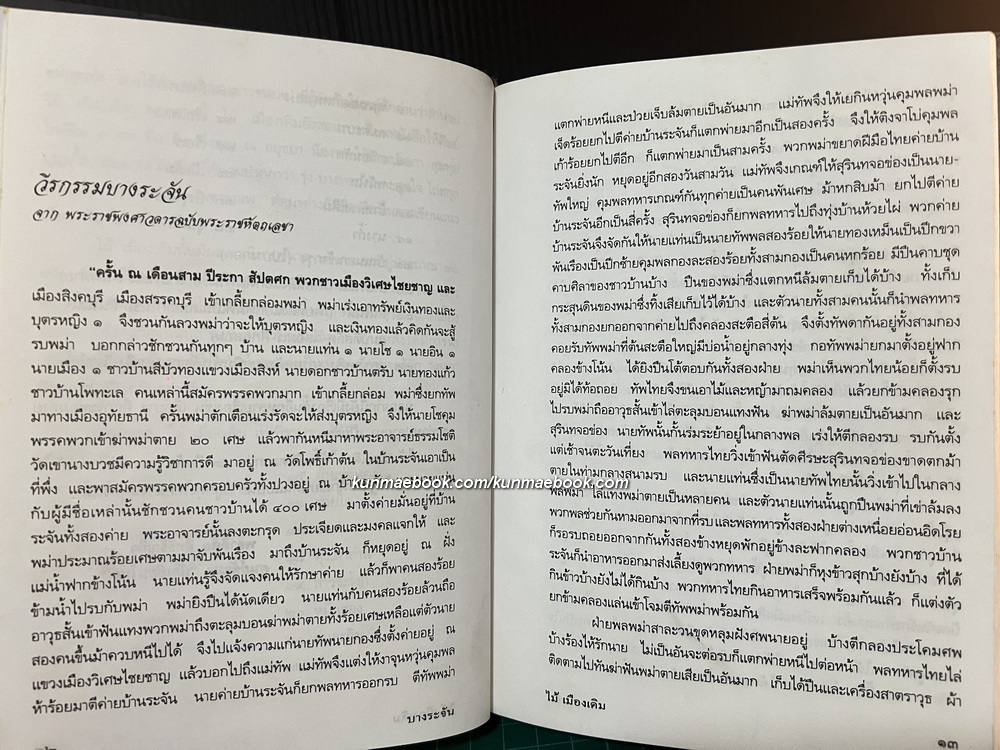 วีรกรรมบางระจัน
จาก พระราชพงศาวดารฉบับพระราชหัตถเลขา
"ครั้น ณ เดือนสาม ปีระกา สัปตศก พวกชาวเมืองวิเศษไชยชาญ และ
เมืองสิงคบุรี เมืองสรรคบุรี เข้าเกลี้ยกล่อมพม่า พม่าเร่งเอาทรัพย์เงินทองและ
บุตรหญิง ๑ จึงชวนกันลวงพม่าว่าจะให้บุตรหญิง และเงินทองแล้วคิดกันจะสู้
รบพม่า บอกกล่าวชักชวนกันทุกๆ บ้าน และนายแท่น ๑ นายโช ๑ นายอิน ๑
นายเมือง ๑ ชาวบ้านสีบัวทองแขวงเมืองสิงห์ นายดอกชาวบ้านตรับ นายทองแก้ว
ชาวบ้านโพทะเล คนเหล่านี้สมัครพรรคพวกมาก เข้าเกลี้ยกล่อม พม่าซึ่งยกทัพ
มาทางเมืองอุทัยธานี ครั้นพม่าตักเตือนเร่งรัดจะให้ส่งบุตรหญิง จึงให้นายโชคุม
พรรคพวกเข้าฆ่าพม่าตาย ๒๐ เศษ แล้วพากันหนีมหาพระอาจารย์ธรรมโชติ
วัดเขานางบวชมีความรู้วิชาการดี มาอยู่ ณ วัดโพธิ์เก้าต้น ในบ้านระจันเอาเป็น
ที่พึ่ง และพาสมัครพรรคพวกครอบครัวทั้งปวงอยู่ ณ บ้านระจัน นายแท่น
กับผู้มีชื่อเหล่านั้นชักชวนคนชาวบ้านได้ ๔๐๐ เศษ มาตั้งค่ายมั่นอยู่ที่บ้าน
ระจันทั้งสองค่าย พระอาจารย์นั้นลงตะกรุด ประเจียดและมงคลแจกให้ และ
พม่าประมาณร้อยเศษตามมาจับพันเรื่อง มาถึงบ้านระจัน ก็หยุดอยู่ ณ ฝั่ง
แม่น้ำฟากข้างโน้น นายแท่นรู้จึงจัดแจงคนให้รักษาค่าย แล้วก็พาคนสองร้อย
ข้ามน้ำไปรบกับพม่า พม่ายิงปืนได้นัดเดียว นายแท่นกับคนสองร้อยล้วนถือ
อาวุธสั้นเข้าฟันแทงพวกพม่าถึงตะลุมบอนฆ่าพม่าตายทั้งร้อยเศษเหลือแต่ตัวนาย
สองคนขึ้นม้าควบหนีไปได้ จึงไปแจ้งความแก่นายทัพนายกองซึ่งตั้งค่ายอยู่ ณ
แขวงเมืองวิเศษไชยชาญ แล้วบอกไปถึงแม่ทัพ แม่ทัพจึงแต่งให้งาจุนหวุ่นคุมพล
ห้าร้อยมาตีค่ายบ้านระจัน นายค่ายบ้านระจันก็ยกพลทหารออกรบ ตีทัพพม่า
บางระจัน
แตกพ่ายหนีและป่วยเจ็บล้มตายเป็นอันมาก แม่ทัพจึงให้เยกินหวุ่นคุมพลพม่า
เจ็ดร้อยยกไปตีค่ายบ้านระจันก็แตกพ่ายมาอีกเป็นสองครั้ง จึงให้ติงจาโบ่คุมพล
เก้าร้อยยกไปตีอีก ก็แตกพ่ายมาเป็นสามครั้ง พวกพม่าขยาดฝีมือไทยค่ายบ้าน
ระจันยิ่งนัก หยุดอยู่อีกสองวันสามวัน แม่ทัพจึงเกณฑ์ให้สุรินทจอข่องเป็นนาย-
ทัพใหญ่ คุมพลทหารเกณฑ์กันทุกค่ายเป็นคนพันเศษ ม้าหกสิบม้า ยกไปตีค่าย
บ้านระจันอีกเป็นสี่ครั้ง สุรินทจอข่องก็ยกพลทหารไปถึงทุ่งบ้านห้วยไผ่ พวกค่าย
บ้านระจันจึงจัดกันให้นายแท่นเป็นนายทัพพลสองร้อยให้นายทองเหม็นเป็นปีกขวา
พันเรืองเป็นปีกซ้ายคุมพลกองละสองร้อยทั้งสามกองเป็นคนหกร้อย มีปืนคาบชุด
คาบศิลาของชาวบ้านบ้าง ปืนพม่าซึ่งแตกหนีล้มตายเก็บได้บ้าง ทั้งเก็บ
กระสุนดินของพม่าซึ่งทิ้งเสียเก็บไว้ได้บ้าง และตัวนายทั้งสามคนนั้นก็นำพลทหาร
ทั้งสามกองยกออกจากค่ายไปถึงคลองสะตือสี่ต้น จึงตั้งทัพดากันอยู่ทั้งสามกอง
คอยรับทัพพม่าที่ต้นสะตือใหญ่มีบ่อน้ำอยู่กลางทุ่ง กอทัพพม่ายกมาตั้งอยู่ฟาก
คลองข้างโน้น ได้ยิงปืนโต้ตอบกันทั้งสองฝ่าย พม่าเห็นพวกไทยน้อยก็ตั้งรบ
อยู่มิได้ท้อถอย ทัพไทยจึงขนเอาไม้และหญ้ามาถมคลอง แล้วยกข้ามคลองรุก
ไปรบพม่าถืออาวุธสั้นเข้าไล่ตะลุมบอนแทงฟัน ฆ่าพม่าล้มตายเป็นอันมาก และ
สุรินทจอข่อง นายทัพนั้นกั้นร่มระย้าอยู่ในกลางพล เร่งให้ตีกลองรบ รบกันตั้ง
แต่เช้าจนตะวันเที่ยง พลทหารไทยวิ่งเข้าฟันตัดศีรษะสุรินทจอข่องขาดตกม้า
ตายในท่ามกลางสนามรบ และนายแท่นซึ่งเป็นนายทัพไทยนั้นวิ่งเข้าไปในกลาง
พลพม่า ไล่แทงพม่าตายเป็นหลายคน และตัวนายแท่นนั้นถูกปืนพม่าที่เข่าล้มลง
พวกพลช่วยกันหามออกมาจากที่รบและพลทหารทั้งสองฝ่ายต่างเหนื่อยอ่อนอิดโรย
ก็รอรบถอยออกจากกันทั้งสองข้างหยุดพักอยู่ข้างละฟากคลอง พวกชาวบ้าน
ระจันก็นำอาหารออกมาส่งเลี้ยงดูพวกทหาร ฝ่ายพม่าก็หุงข้าวสุกบ้างยังบ้าง ที่ได้
กินข้าวบ้างยังไม่ได้กินบ้าง พวกทหารไทยกินอาหารเสร็จพร้อมกันแล้ว ก็แต่งตัว
ยกข้ามคลองแล่นเข้าโจมตีทัพพม่าพร้อมกัน
ฝ่ายพลพม่าสาละวนขุดหลุมฝังศพนายอยู่ บ้างตีกลองประโคมศพ
บ้างร้องไห้รักนาย ไม่เป็นอันจะต่อรบก็แตกพ่ายหนีไปต่อหน้า พลทหารไทยไล่
ติดตามไปทันฆ่าฟันพม่าตายเสียเป็นอันมาก เก็บได้ปืนและเครื่องสาตราวุธ ผ้า
ไม้ เมืองเดิม
๑๓
kunmaebook.com/kunmaebook.com